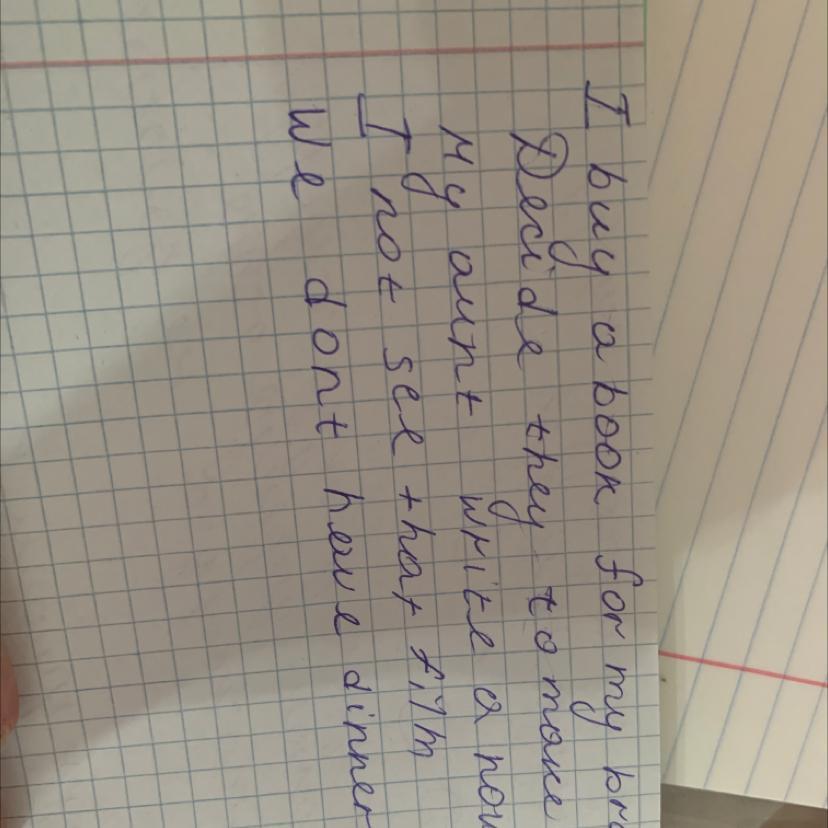 I buy a book for my
Decide they to make
My aunt write a
I not see that film
We dont have dinner